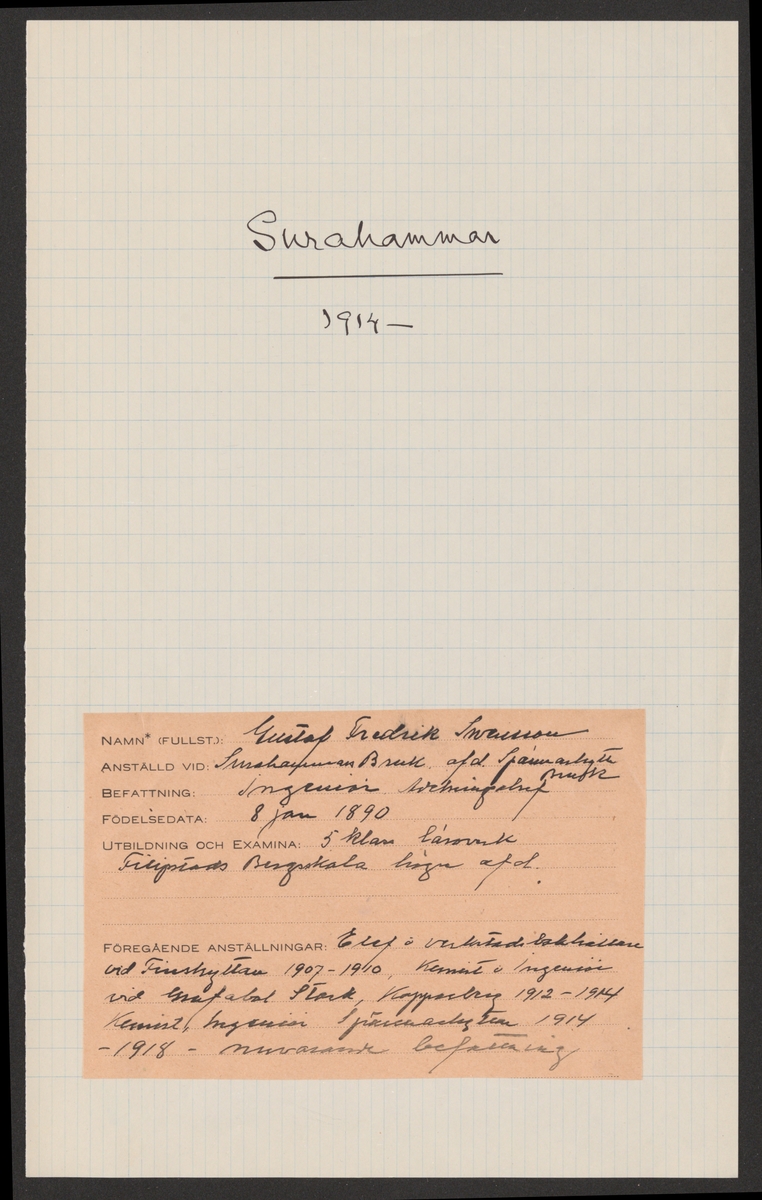 Surahammar
1914 —
NAMN* (FULLST.): Gustaf Fredrik Swensson
ANSTÄLLD VID: Surahammars Bruk afd. Spännarhytte
Bruk
BEFATTNING: Ingeniör Avdelningschef
FÖDELSEDATA: 8 jan 1890
UTBILDNING OCH EXAMINA: 5 klass läroverk
Filipstads Bergsskola högre afd.
FÖREGÅENDE ANSTÄLLNINGAR: Elef o verkstads
vid Finshyttan 1907-1910, Kemist o Ingeniör
vid Stork, Kopparberg 1912-1914
Kemist, Ingeniör Spännarhyttan 1914
-1918 - nuvarande befattning